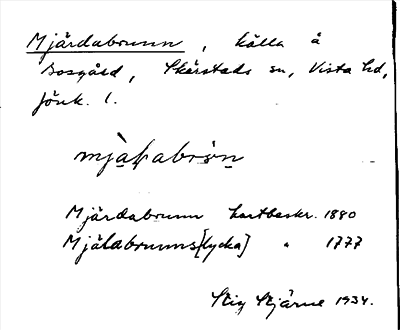 Mjärdabrunn, källa å
Bosgård, Skärstads sn, Vista hd,
Jönk. l.
mjàḷabrön
Mjärdabrunn kartbeskr. 1880
Mjälabrunns[lycka] " 1777
Stig Stjärne 1934.